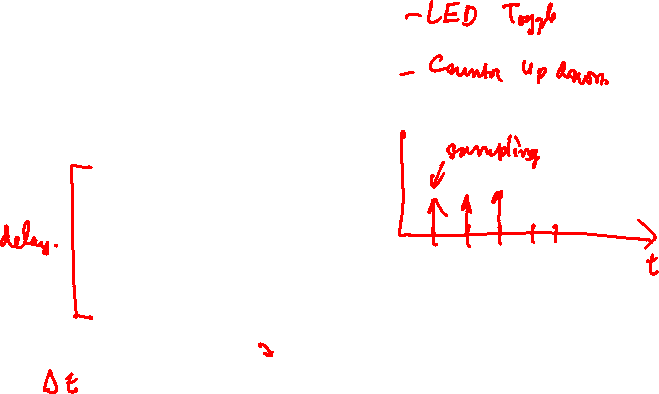 - LED Toggle
- Counter up down
sampling
delay.
t
Δt